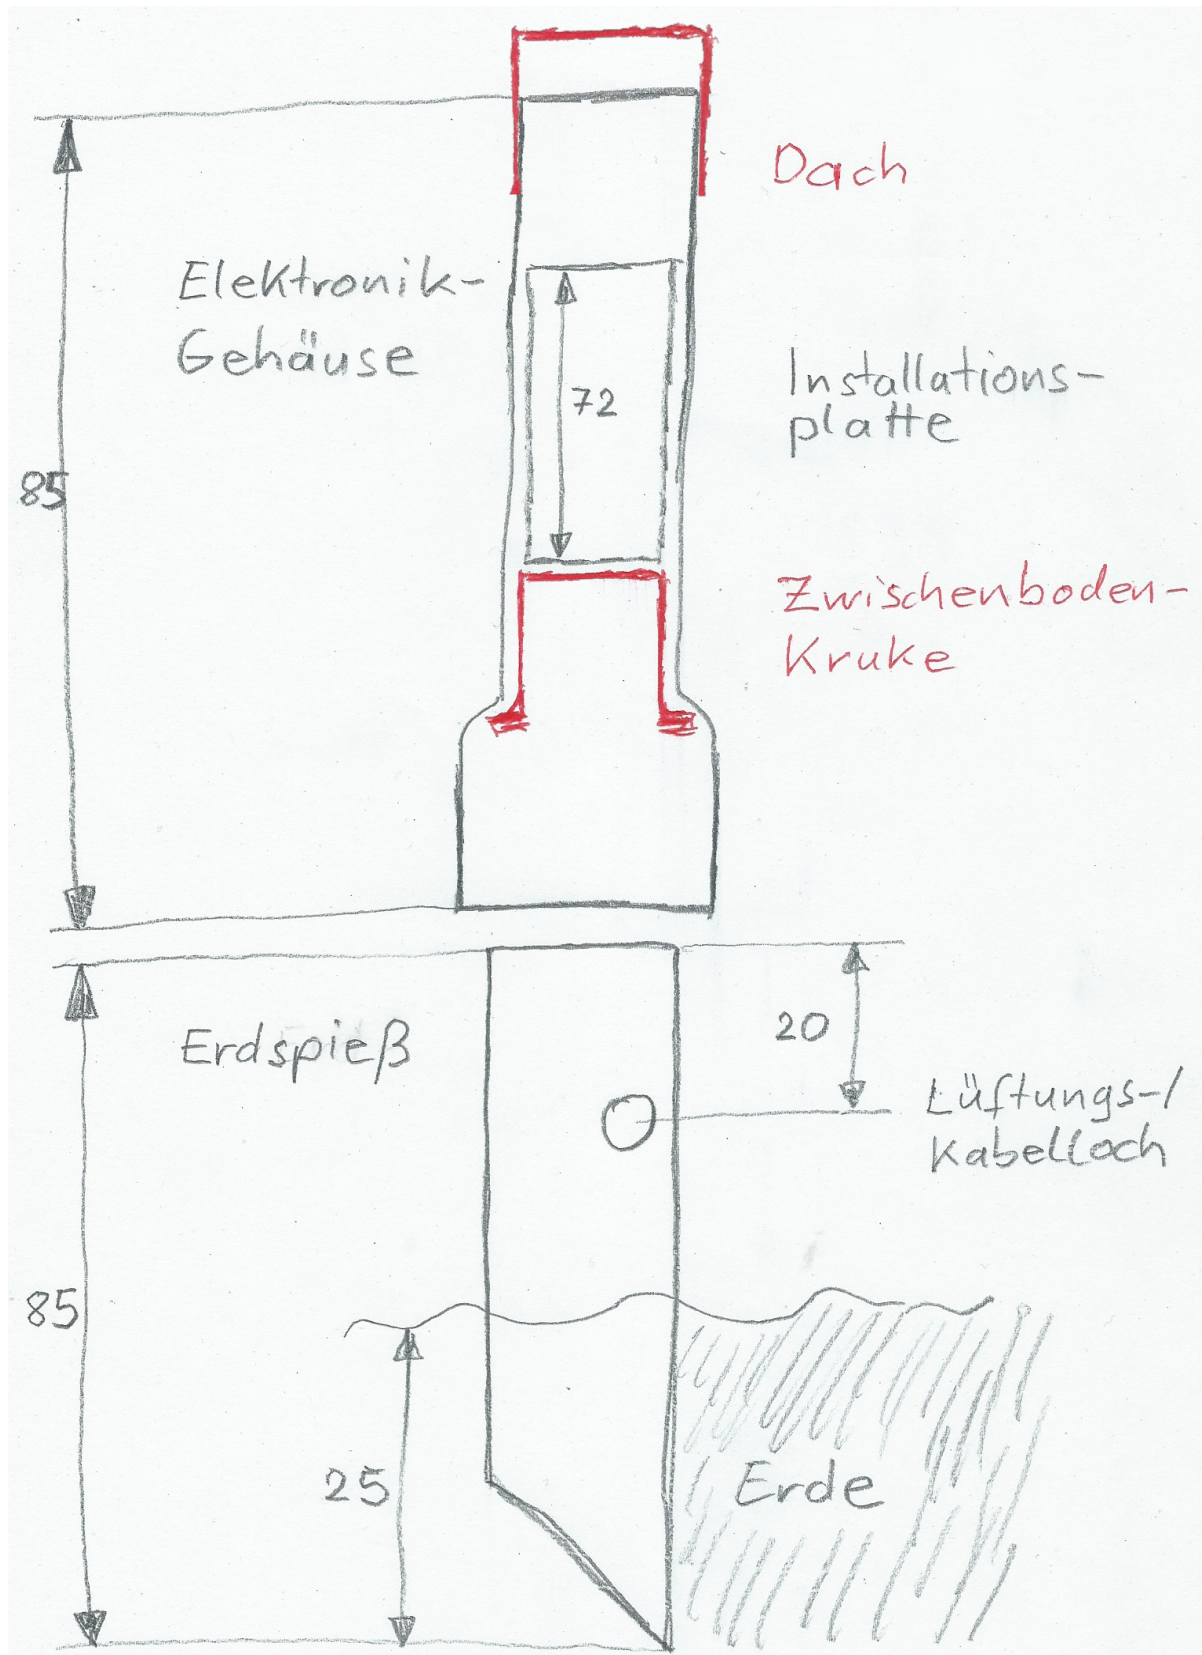 Dach
Elektronik-
Gehäuse
72
Installations-
platte
85
Zwischenboden-
Kruke
Erdspieß
20
Lüftungs-/
Kabelloch
85
25
Erde